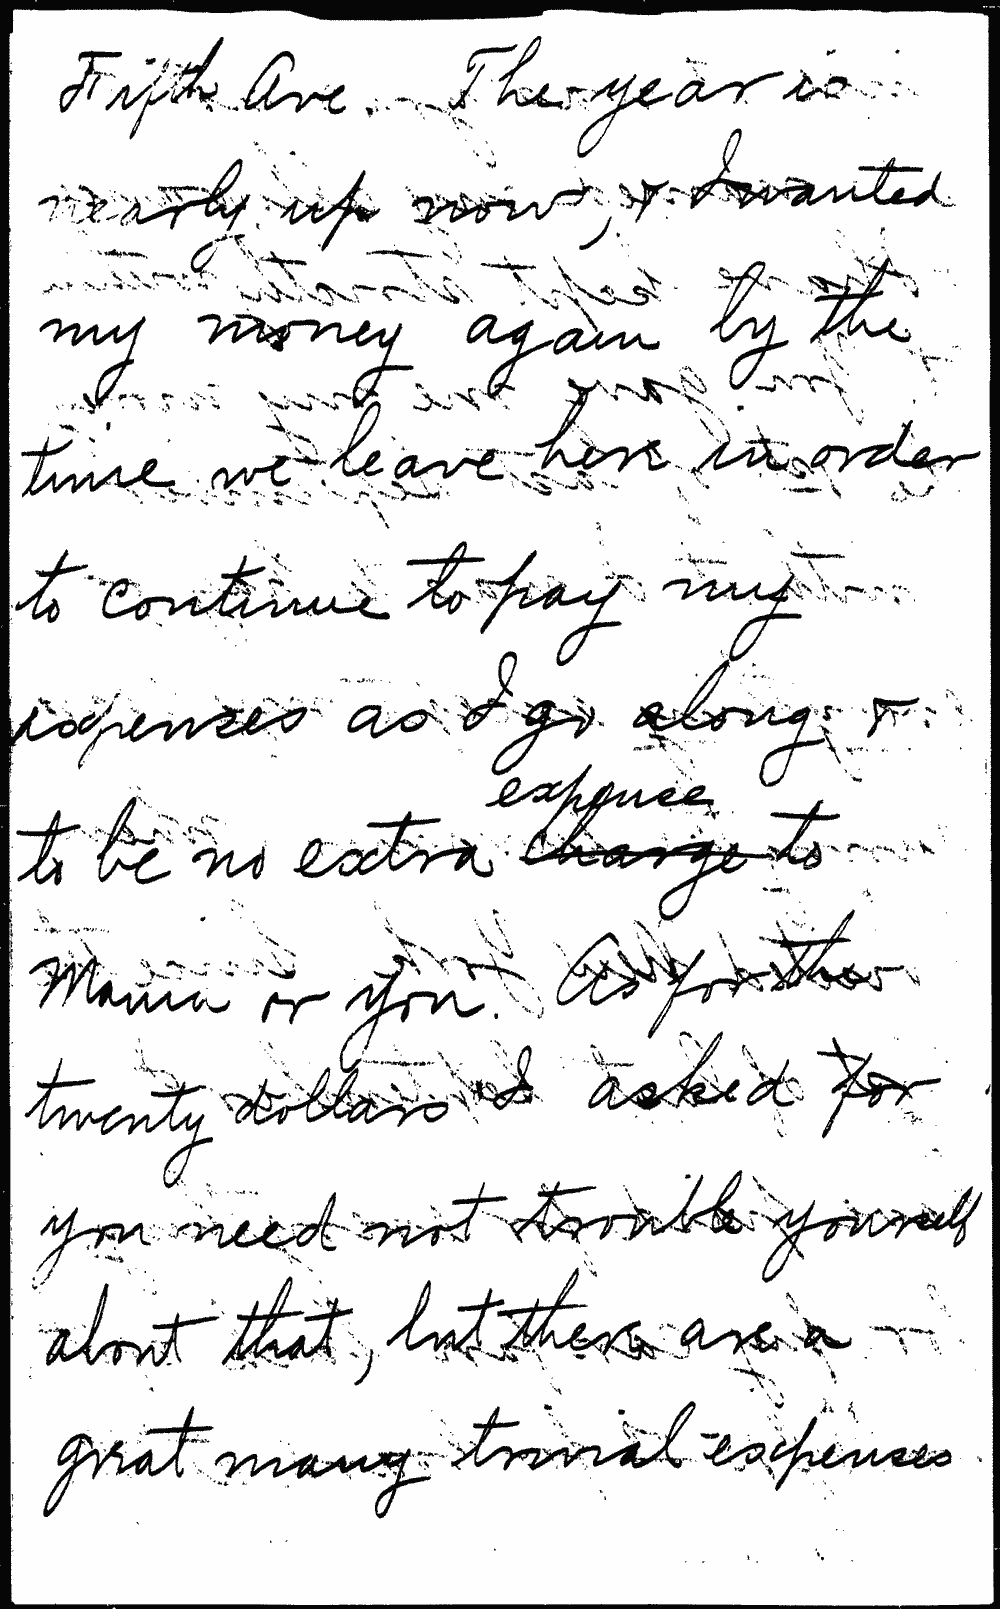 Fifth Ave. The year is
nearly up now, & I wanted
my money again by the
time we leave here in order
to continue to pay my
expenses as I go along &
expense
to be no extra charge to
Mama or you. As for the
twenty dollars I asked for
you need not trouble yourself
about that, but there are a
great many trivial expenses